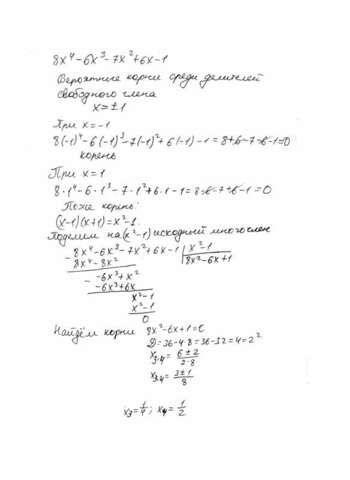 8x⁴-6x³-7x²+6x-1
Вероятные корни среди делителей
свободного члена
x=±1
При x=-1
8(-1)⁴-6(-1)³-7(-1)²+6(-1)-1=8+6-7-6-1=0
корень
При x=1
8·1⁴-6·1³-7·1²+6·1-1=8-6-7+6-1=0
Тоже корень!
(x-1)(x+1)=x²-1
Поделим на (x²-1) исходный многочлен
-8x⁴-6x³-7x²+6x-1 | x²-1
8x⁴-8x² 8x²-6x+1
- -6x³+x²
-6x³+6x
x²-1
x²-1
0
Найдём корни 8x²-6x+1=0
D=36-4·8=36-32=4=2²
x₃,₄=(6±2)/(2·8)
x₃,₄=(3±1)/8
x₃=1/4; x₄=1/2